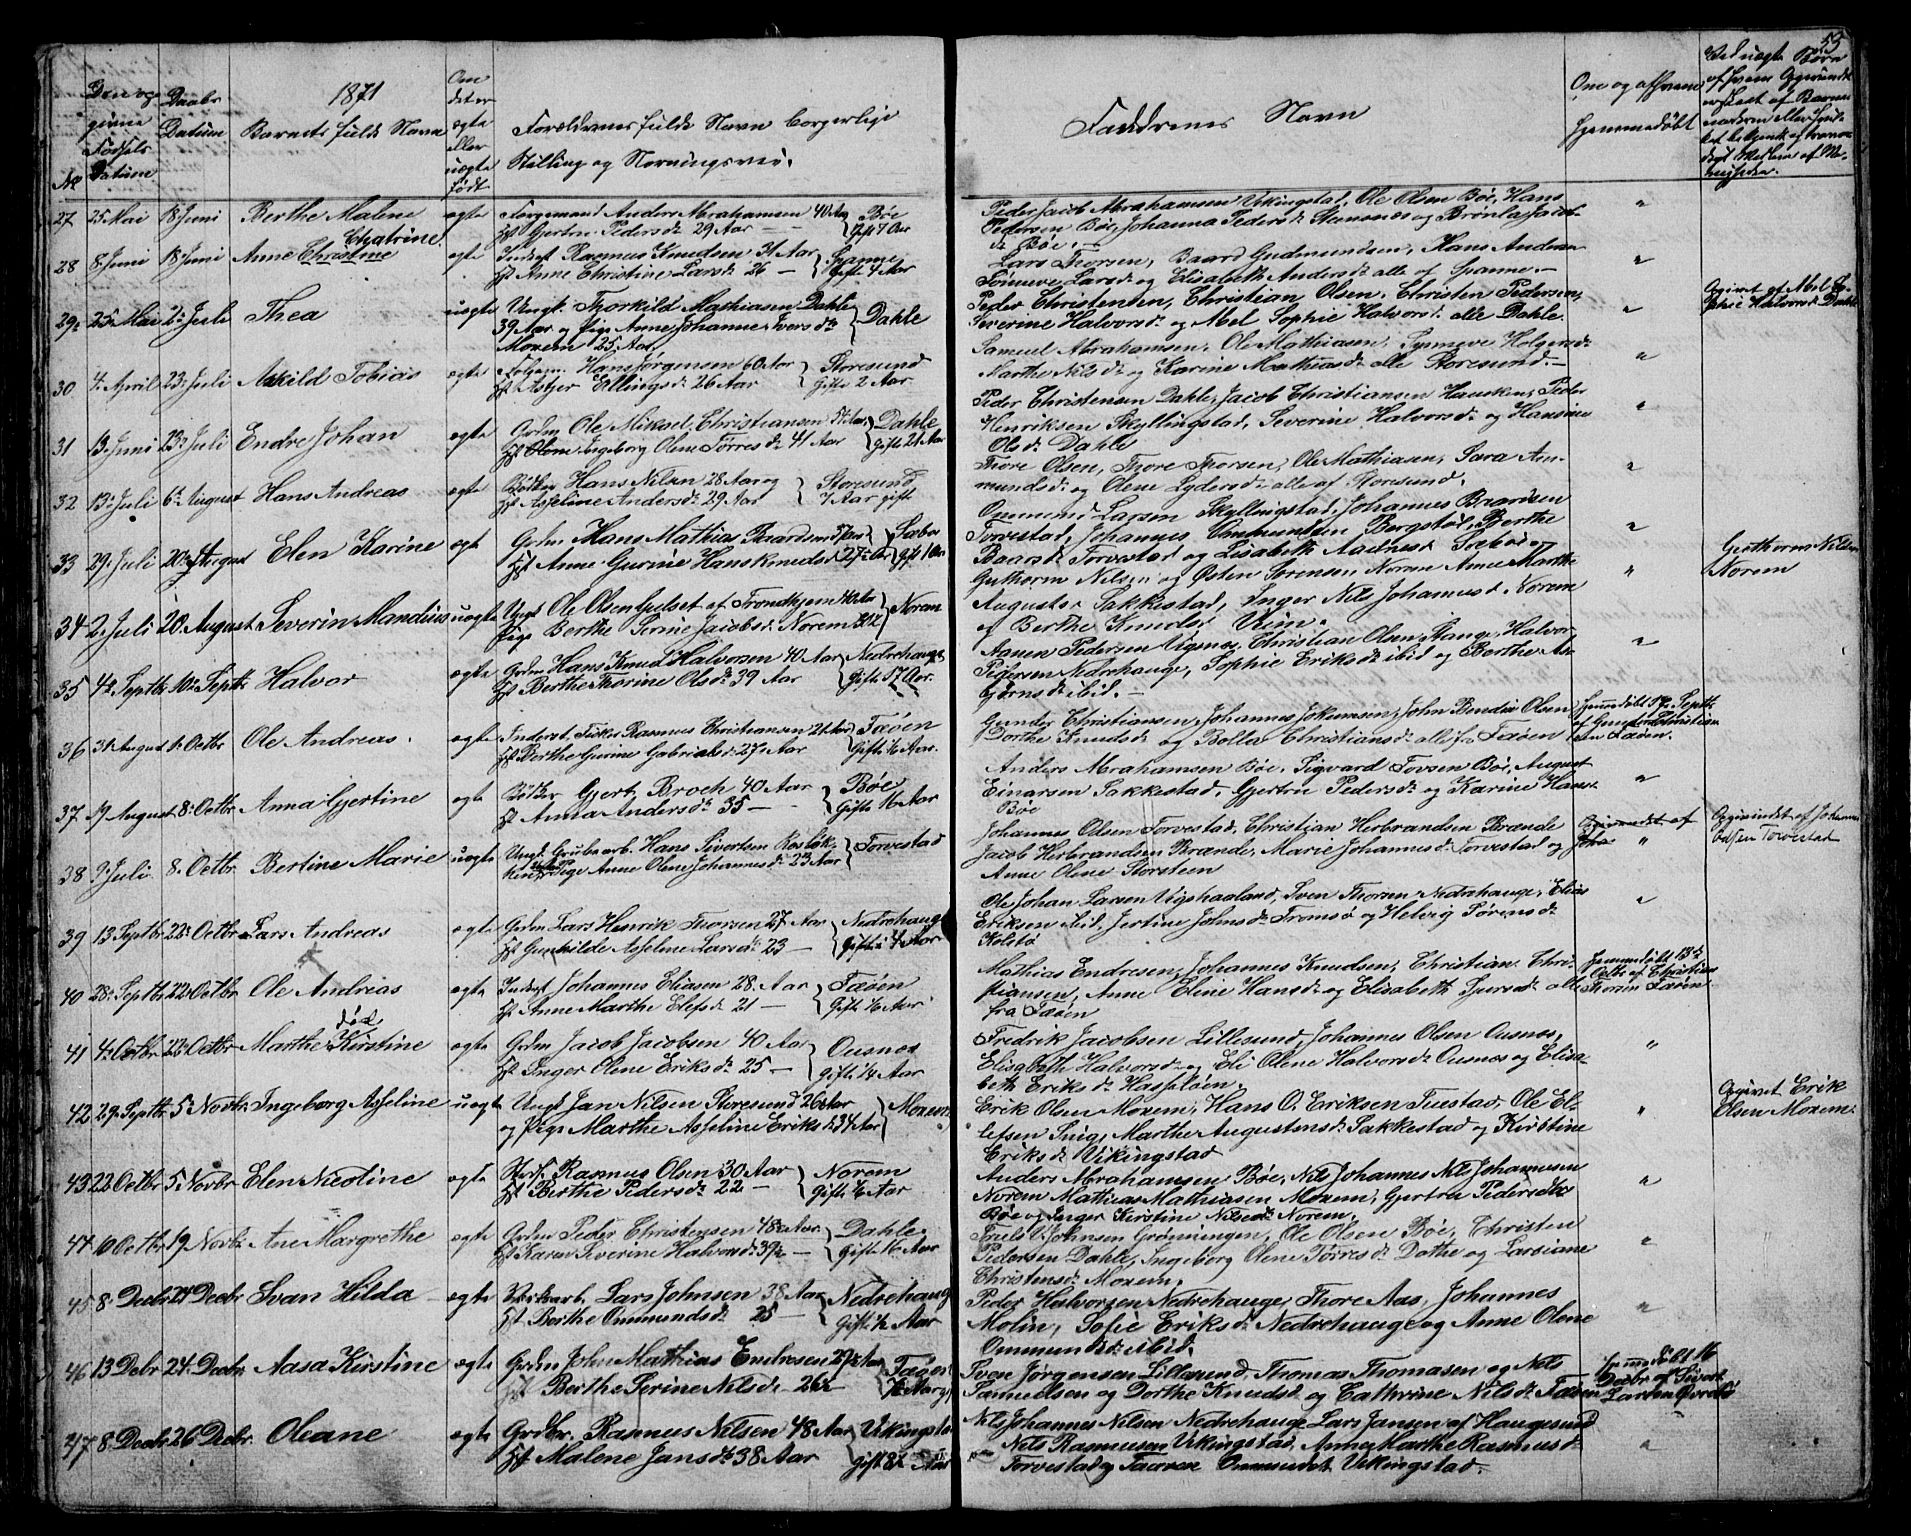 53
1871
No
Den op
givne
Fødsels
Datum
Daabs
Datum
Barnets fulde Navn
Om
det er
ægte
eller
uægte
født
Forældrenes fulde Navn borgerlige
Stilling og Næringsvei.
Faddrenes Navn
Om og af hvem
hjemmedøbt
Ved uægte Børn
27 25 Mai 18 Juni Berthe Malene ægte Forgemand Anders Abrahamsen 40 Aar Bøe
Hst Gjertru Pedersd: 29 Aar Gift 7 Aar
Peder Jacob Abrahamsen Vikingstad, Ole Olsen Bø, Hans
Pedersen Bøe, Johanna Pedersd Stemnæs og Brønla Jacob
d: Bøe. "
Chatrine
28 8 Juni 18 Juni Anne Christine ægte Inderst Rasmus Knudsen 31 Aar Spanne
Hst Anne Christine Larsd: 26 Gift 4 Aar
Lars Thorsen, Baard Gudmundsen, Hans Andreas
Larsd: og Elisabeth Andersd: alle af Spanne. "
29 25 Mai 2 Juli Thea uægte Ungk. Thorkild Mathiasen Dahle
39 Aar og Pige Anne Johanne Iversd: Dahle
Moxem 25 Aar.
Peder Christensen, Christian Olsen, Christen Pedersen,
Severine Halvorsd: og Mel Sophie Halvorsd: alle Dahle. "
Opgivet af Mel So-
phie Halvorsd: Dahle
30 4 April 23 Juli Askild Tobias ægte Hans Jørgensen 60 Aar Storesund
Hst Astjer Ellingsd: 26 Aar Gift 2 Aar
Samuel Abrahamsen, Ole Mathiasen, Synneve Holgersd:
Marthe Nilsd: og Karine Mathiasd: alle Storesund. "
31 13 Juni 23 Juli Endre Johan ægte Grdm Ole Mikael Christiansen 54 Aar Dahle
Hst Olene Ingeborg Olene Tørresd: 41 Aar Gift 21 Aar
Peder Christensen Dahle, Jacob Christiansen Hauken, Peder
Henriksen Skyllingstad, Severine Halvorsd: og Hansine
Olsd: Dahle "
32 13 Juli 6 August Hans Andreas ægte Bødker Hans Nilsen 28 Aar og Storesund
Hst Asseline Andersd: 29 Aar 7 Aar gift
Thore Olsen, Thore Thorsen, Ole Mathiasen, Sara Am-
mundsd: og Olene Lydersd: alle af Storesund. "
33 29 Juli 20 August Elen Karine egte Grdm Hans Mathias Baardsen 37 Aar Sæbø
Hst Anne Gurine Hans Knudsd 27 Aar Gift 1 Aar
Ommund Larsen Skyllingstad, Johannes Baardsen
Torvestad, Johannes Ommundsen Bergstøl, Berthe
Baarsd: Torvestad og Lisabeth Aadnesd Sæbø "
34 2 Juli 20 August Severin Mandius uægte Ungk Ole Olsen Gulset af Trondhjem 40 Aar Norem
Pige Berthe Serine Jacobsd: Norem 30½
Guthorm Nilsen og Østen Sørensen Norem Anne Marthe
Augustsd Sakkestad, Inger Nils Johannesd. Norem
og Berthe Knudsd Veim. "
Guthorm Nilsen
Norem
35 4 Septbr 10 Septbr Halvor ægte Grdm Hans Knud Halvorsen 40 Aar Nedrehauge
Hst Berthe Thorine Olsd: 39 Aar Gift 17 Aar
Aanen Pedersen Vignes, Christian Olsen Stange, Halvor
Pedersen Nedrehauge, Sophie Eriksd: ibid og Berthe As-
bjørnsd: ibid. "
36 31 August 1 Octbr Ole Andreas ægte Inderst, Fisker Rasmus Christiansen 21 Aar Fæøen
Hst Berthe Gurine Gabrielsd: 27 Aar Gift ½ Aar
Gunder Christiansen, Johannes Jokumsen, John Bendix Olsen
Dorthe Knudsd: og Bolla Christiansd: alle fra Fæøen
Hjemmedøbt 17 Septbr
af Gunder Christian
sen Fæøen.
37 19 August 8 Octbr Anna Gjertine egte Bødker Gjert Broch 40 Aar Bøe
Hst Anna Andersd: 35 Gift 16 Aar
Anders Abrahamsen Bøe, Sigvard Tovsen Bø, August
Einarsen Sakkestad, Gjertru Pedersd: og Karine Hansd
Bøe "
38 9 Juli 8 Octbr Bertine Marie uægte Ungk. Grubearb. Hans Sivertsen Røsløk- Torvestad
ken og Pige Anne Olene Johannesd: 23 Aar
Johannes Olsen Torvestad, Christian Herbrandsen Brænde
Jacob Herbrandsen Brænde, Marie Johannesd: Torvestad og
Anne Olene Storsteen
Opgivendet af
Joha "
Opgivendet af Johannes
Olsen Torvestad
39 13 Septbr 22 Octbr Lars Andreas ægte Grdm Lars Henrik Thorsen 27 Aar Nedrehauge
Hst Gunhilde Asseline Larsd: 23 Gift i 4 Aar
Ole Johan Larsen Vigshaaland, Sven Thorsen Nedrehauge, Elias
Eriksen ibid, Jertine Johnsd: Tromsø og Helvig Sørensd:
Kolstø "
40 28 Septbr 22 Octbr Ole Andreas ægte Inderst Johannes Eliasen 28 Aar Fæøen
Hst Anne Marthe Elefsd: 21 Gift ½ Aar
Mathias Endresen, Johannes Knudsen, Christian Chri-
stiansen, Anne Eline Hansd: og Elisabeth Sjursd: alle
fra Fæøen
Hjemmedøbt 13de
Octbr af Christian
Thorsen Fæøen
død
41 4 Octbr 22 Octbr Marthe Kirstine ægte Grdm Jacob Jacobsen 40 Aar Ousnes
Hst Inger Olene Eriksd: 25 Gift ¼ Aar
Fredrik Jacobsen Lillesund, Johannes Olsen Ousnes,
Elisabeth Halvorsd: og Eli Olene Halvorsd: Ousnes og Elisa-
beth Eriksd: Hasseløen. "
42 29 Septbr 5 Novbr Ingeborg Asseline uægte Ungk Jan Nilsen Storesund 26 Aar Moxem
og Pige Marthe Asseline Eriksd: 34 Aar
Erik Olsen Moxem, Hans O. Eriksen Tuestad, Ole El-
lefsen Snig, Marthe Augustensd: Sakkestad og Kirstine
Eriksd: Vikingstad "
Opgivet Erik
Olsen Moxem.
43 22 Octbr 5 Novbr Elen Nicoline ægte Rasmus Olsen 30 Aar Norem
Hst Berthe Pedersd: 22 Gift ½ Aar
Anders Abrahamsen Bøe, Nils Johannes Nils Johannesen
Norem Mathias Mathiasen Moxem, Gjertru Pedersd
Bøe og Inger Kirstine Nilsd: Norem. "
44 6 Octbr 19 Novbr Ane Margrethe ægte Grdm Peder Christensen 48 Aar Dahle
Hst Karen Severine Halvorsd: 39½ Gift 16 Aar
Troels V. Johnsen Grønningen, Ole Olsen Bøe, Christen
Pedersen Dahle, Ingeborg Olene Tørresd: Dathe og Larsiane
Christensd: Moxem. "
45 8 Decbr 24 Decbr Svan Hilda ægte Lars Johnsen 38 Aar Nedrehaug
Hst Berthe Ommundsd: 25 Gift ½ Aar
Peder Halvorsen Nedrehauge, Thore Aas, Johannes
Molin, Sofie Eriksd: Nedrehauge og Anne Olene
Ommundsd: ibid. "
46 13 Debr 24 Decbr Aasa Kirstine ægte Grdm John Mathias Endresen 29½ Aar Fæøen
Hst Berthe Serine Nilsd: 26½
Svere Jørgensen Lillesund, Thomas Thomasen og Nels
Samuelsen og Dorthe Knudsd: og Cathrine Nilsd: Fæøen
Hjemmedøbt 16
Decbr af Sivert
Larsen Qvalø
47 8 Decbr 26 Decbr Oleane ægte Grdbr. Rasmus Nilsen 48 Aar Vikingstad
Hst Malene Jansd: 38 Aar Gift 8½ Aar
Nils Johannes Nilsen Nedrehauge Lars Jansen af Haugesund
Nils Rasmusen Vikingstad, Anne Marthe Rasmusd:
Torvestad og Taarese Ommundsd: Vikingstad. "